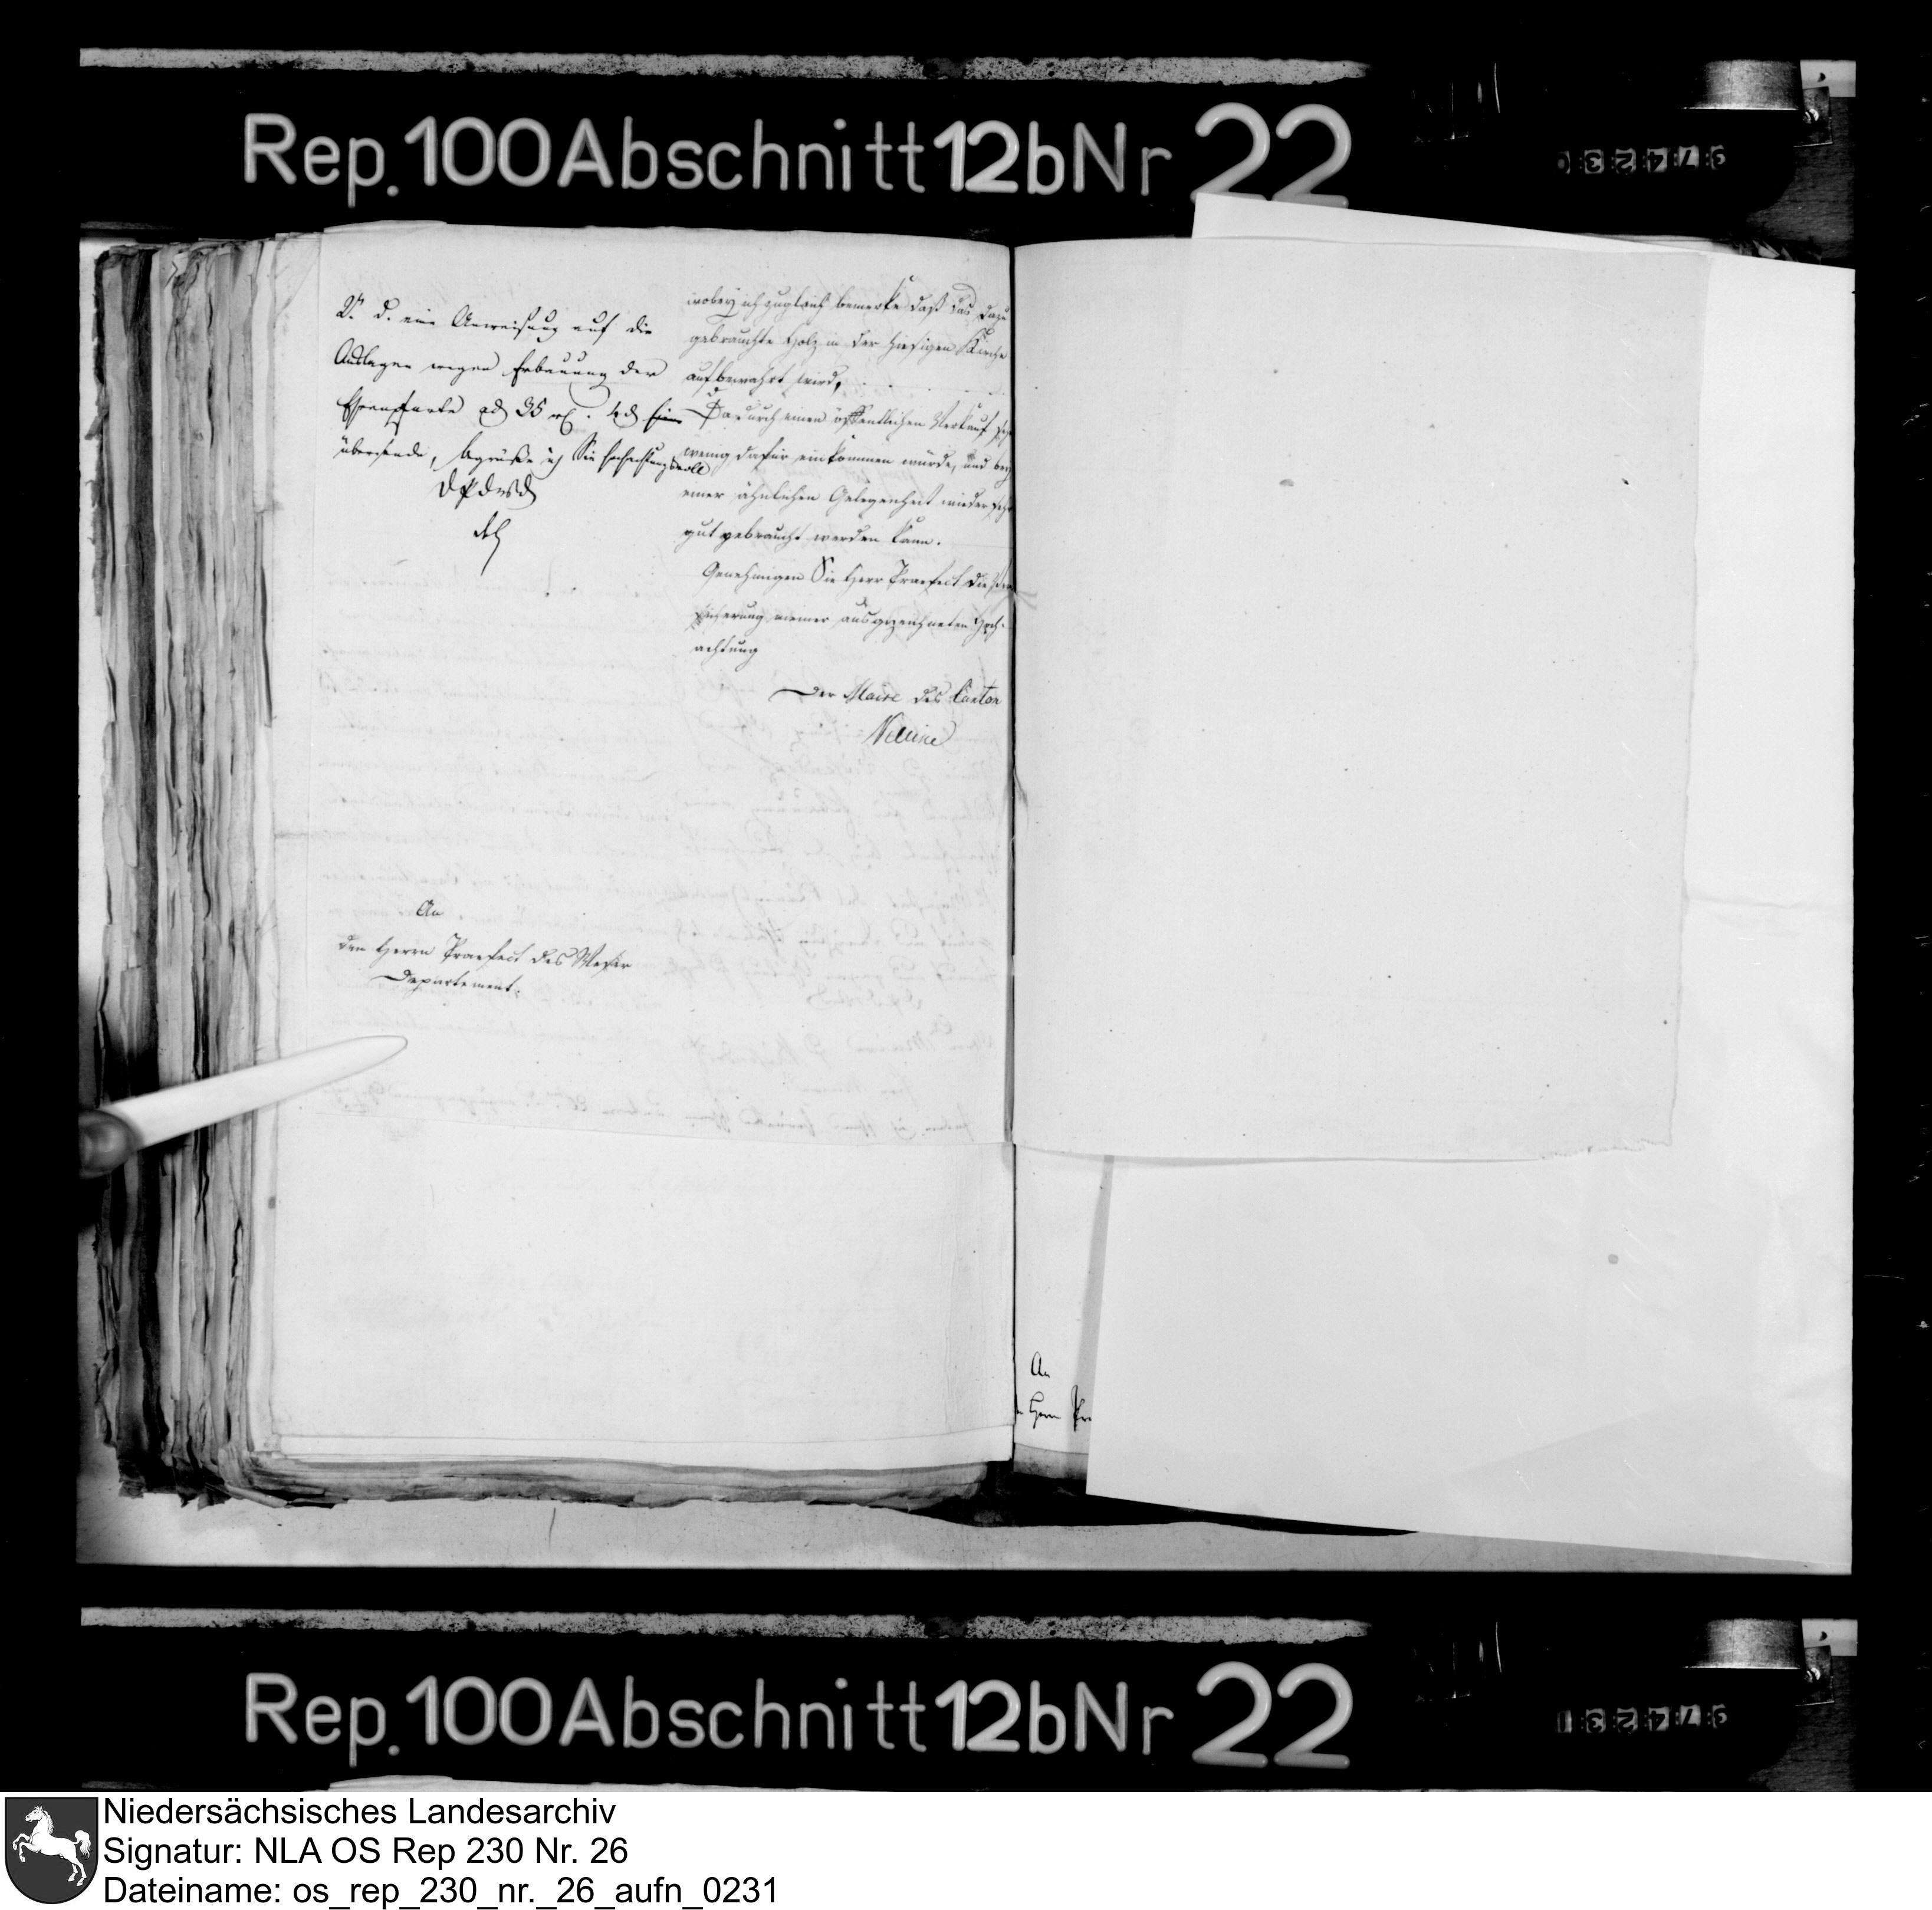 Rep. 100 Abschnitt 12b Nr 22
V. d. eine Anweisung auf die
Auslagen wegen Erbauung der
Ehrenpforte ad 35 4 d
übersende, begrüße ich Sie hochachtungsvoll
wobey ich zugleich bemerke daß das dazu
gebrauchte Holz in der hiesigen Kirche
aufbewahrt wird,
Da durch einen öffentlichen Verkauf sehr
wenig dafür einkommen würde, und bey
einer ähnlichen Gelegenheit wieder sehr
gut gebraucht werden kann.
Genehmigen Sie Herr Praefect die Ver
sicherung meiner ausgezeichneten Hoch-
achtung
Der Maire des Canton
An
den Herrn Praefect des Weser
Departement.
An
Herrn Pr
Rep. 100 Abschnitt 12b Nr 22
Niedersächsisches Landesarchiv
Signatur: NLA OS Rep 230 Nr. 26
Dateiname: os_rep_230_nr._26_aufn_0231